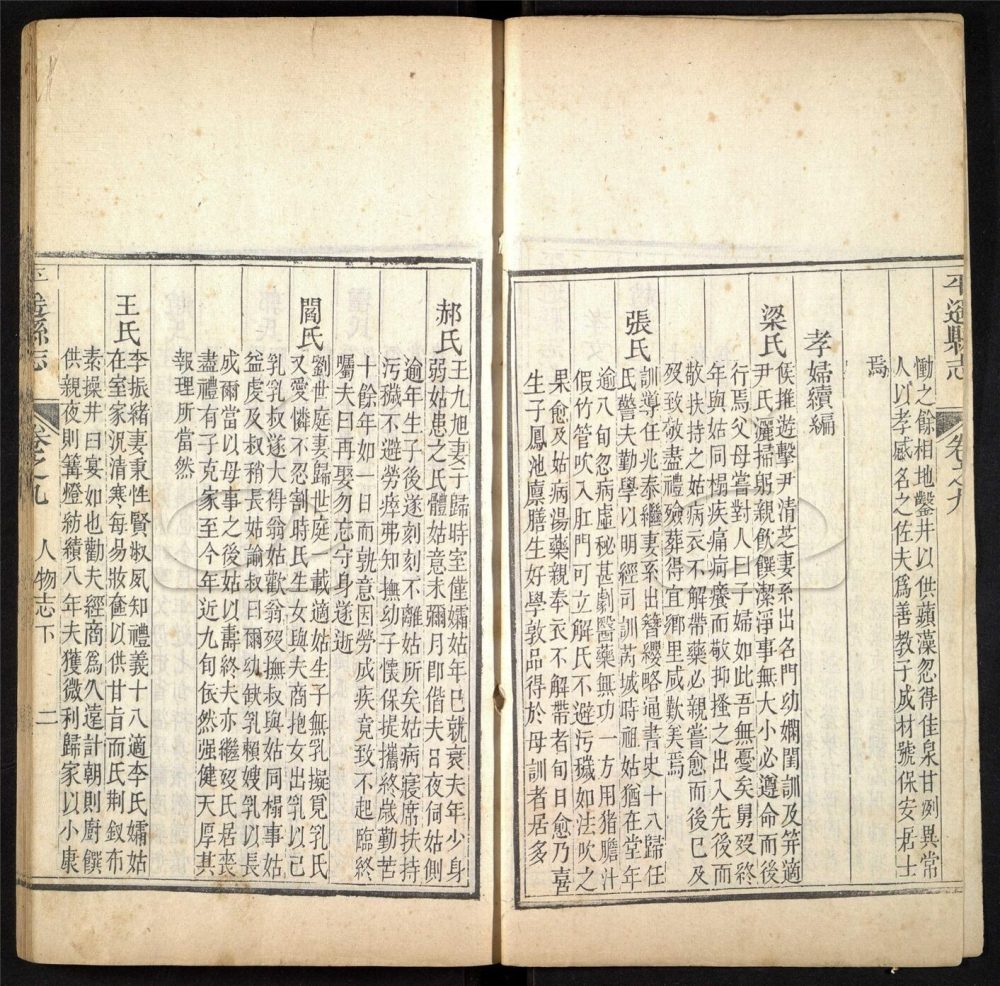 平遙縣志
卷之九
慟之餘相地鑿井以供蘋藻忽得佳泉甘例異常
人以孝感名之佐夫爲善教子成材號保安居士
焉
孝婦續編
梁氏
候推遊擊尹清芝妻系出名門幼嫻閨訓及笄適
尹氏灑掃躬親飲饌潔淨事無大小必遵命而後
行焉父母嘗對人曰子婦如此吾無憂矣舅歿終
年與姑同榻疾痛疴癢而敬抑搔之出入先後而
敬扶持之姑病衣不解帶藥必親嘗愈而後已及
歿致敬盡禮殮葬得宜鄉里咸歎美焉
張氏
訓導任兆泰繼妻系出簪纓略通書史十八歸任
氏警夫勤學以明經司訓芮城時祖姑猶在堂年
逾八旬忽病虛秘甚劇醫藥無功一方用猪膽汁
假竹管吹入肛門可立解氏不避污穢如法吹之
果愈及姑病湯藥親奉衣不解帶者旬日愈乃喜
生子鳳池廩膳生好學敦品得於母訓者居多
郝氏
王九旭妻于歸時室僅孀姑年已就衰夫年少身
弱姑患之氏體姑意未彌月即偕夫日夜伺姑側
逾年生子後遂刻刻不離姑所矣姑病寢席扶持
污穢不避勞瘁弗知撫幼子懷保提攜終歲勤苦
十餘年如一日而孰意因勞成疾竟致不起臨終
囑夫曰再娶勿忘守身遂逝
閻氏
劉世庭妻歸世庭 載適姑生子無乳擬覓乳氏
又愛憐不忍割時氏生女與夫商抱女出乳以己
乳乳叔遂大得翁姑歡翁歿撫叔與姑同榻事姑
益虔及叔稍長姑諭叔曰爾幼飲乳賴嫂乳以長
成爾當以母事之後姑以壽終夫亦繼歿氏居喪
盡禮有子克家至今年近九旬依然强健天厚其
報理所當然
王氏
李振緒妻秉性賢淑夙知禮義十八適李氏孀姑
在室家況清寒每易妝奩以供甘旨而氏荆釵布
素操井臼宴如也勸夫經商爲久遠計朝則廚饌
供親夜則篝燈紡績八年夫獲微利歸家以小康
平遙縣志
卷之九
人物志下
二